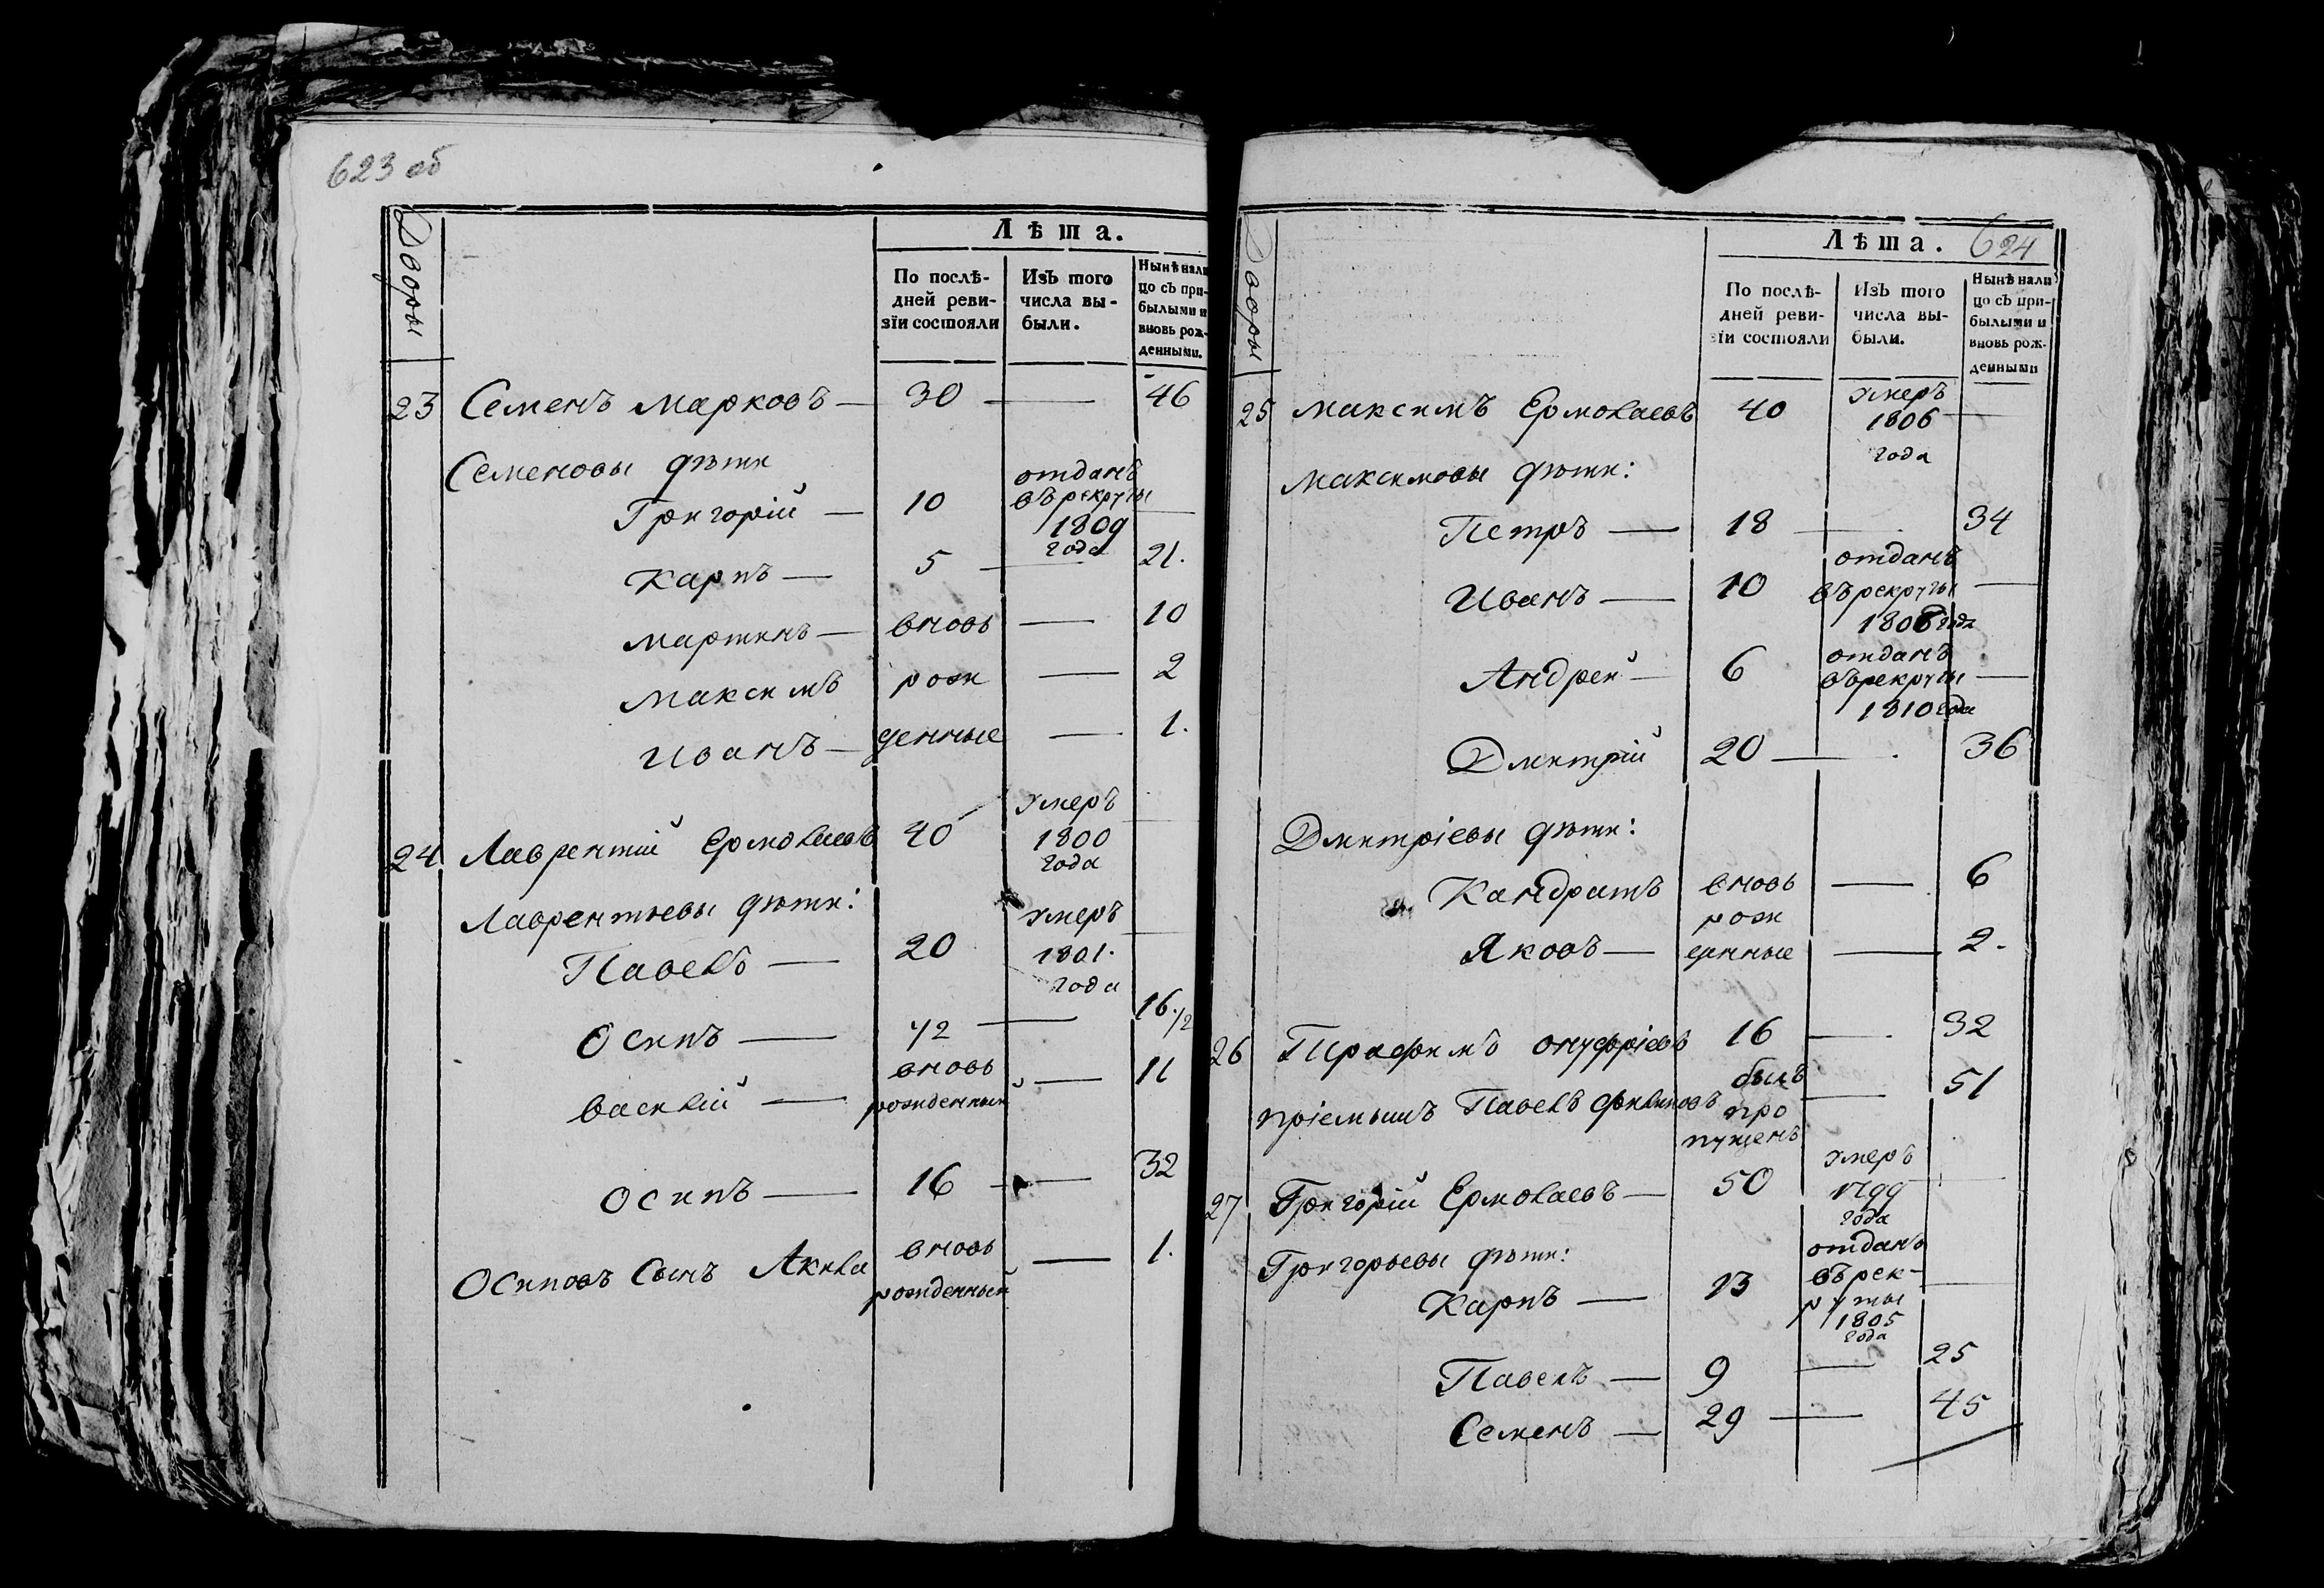 623 об
Дворы
Лѣта.
По послѣ-
дней реви-
зіи состояли
Изъ того
числа вы-
были.
Нынѣ нали
цо съ при-
былыми и
вновь рож-
денными.
23 Семенъ Марковъ — 30 — 46
Семеновы дѣти
Григорій — 10 отданъ
въ рекруты
1809
года
Карпъ — 5 — 21.
Мартинъ — вновь — 10
Максимъ рож — 2
Иванъ — денные — 1.
24 Лаврентій Ермолаевъ 40 умеръ
1800
года
Лаврентьевы дѣти:
Павелъ — 20 умеръ
1801.
года
Осипъ — 1/2 — 16.1/2
Василій — вновь
рожденный — 11
Осипъ — 16 — 32
Осиповъ сынъ Акила вновь
рожденный — 1.
Дворы
Лѣта. 624
По послѣ-
дней реви-
зіи состояли
Изъ того
числа вы-
были.
Нынѣ нали
цо съ при-
былыми и
вновь рож-
денными
25 Максимъ Ермолаевъ 40 умеръ
1806
года —
Максимовы дѣти:
Петръ — 18 — 34
Иванъ — 10 отданъ
въ рекруты
1806 года —
Андрей — 6 отданъ
въ рекруты
1810 года —
Дмитрій 20 — 36
Дмитріевы дѣти:
Кандратъ вновь — 6
рож
Яковъ — енные — 2.
26 Прафимъ Онуфріевъ 16 — 32
пріемышъ Павелъ Филиповъ былъ
про
пущенъ — 51
27 Григорій Ермолаевъ — 50 умеръ
1799
года
Григорьевы дѣти:
Карпъ — 13 отданъ
въ рек-
руты
1805
года
Павелъ — 9 — 25
Семенъ — 29 — 45